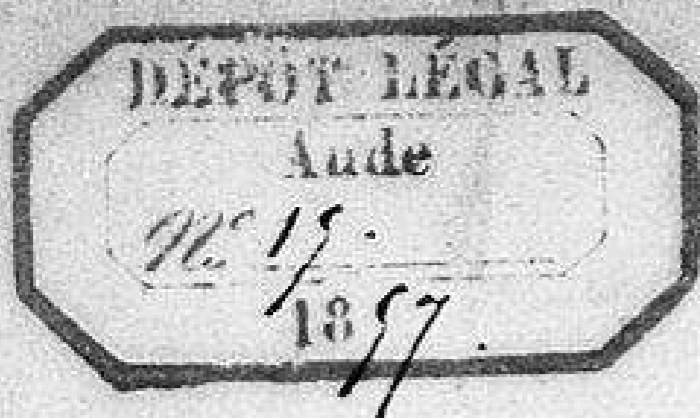 DÉPÔT LÉGAL
Aude
No 15.
1857.